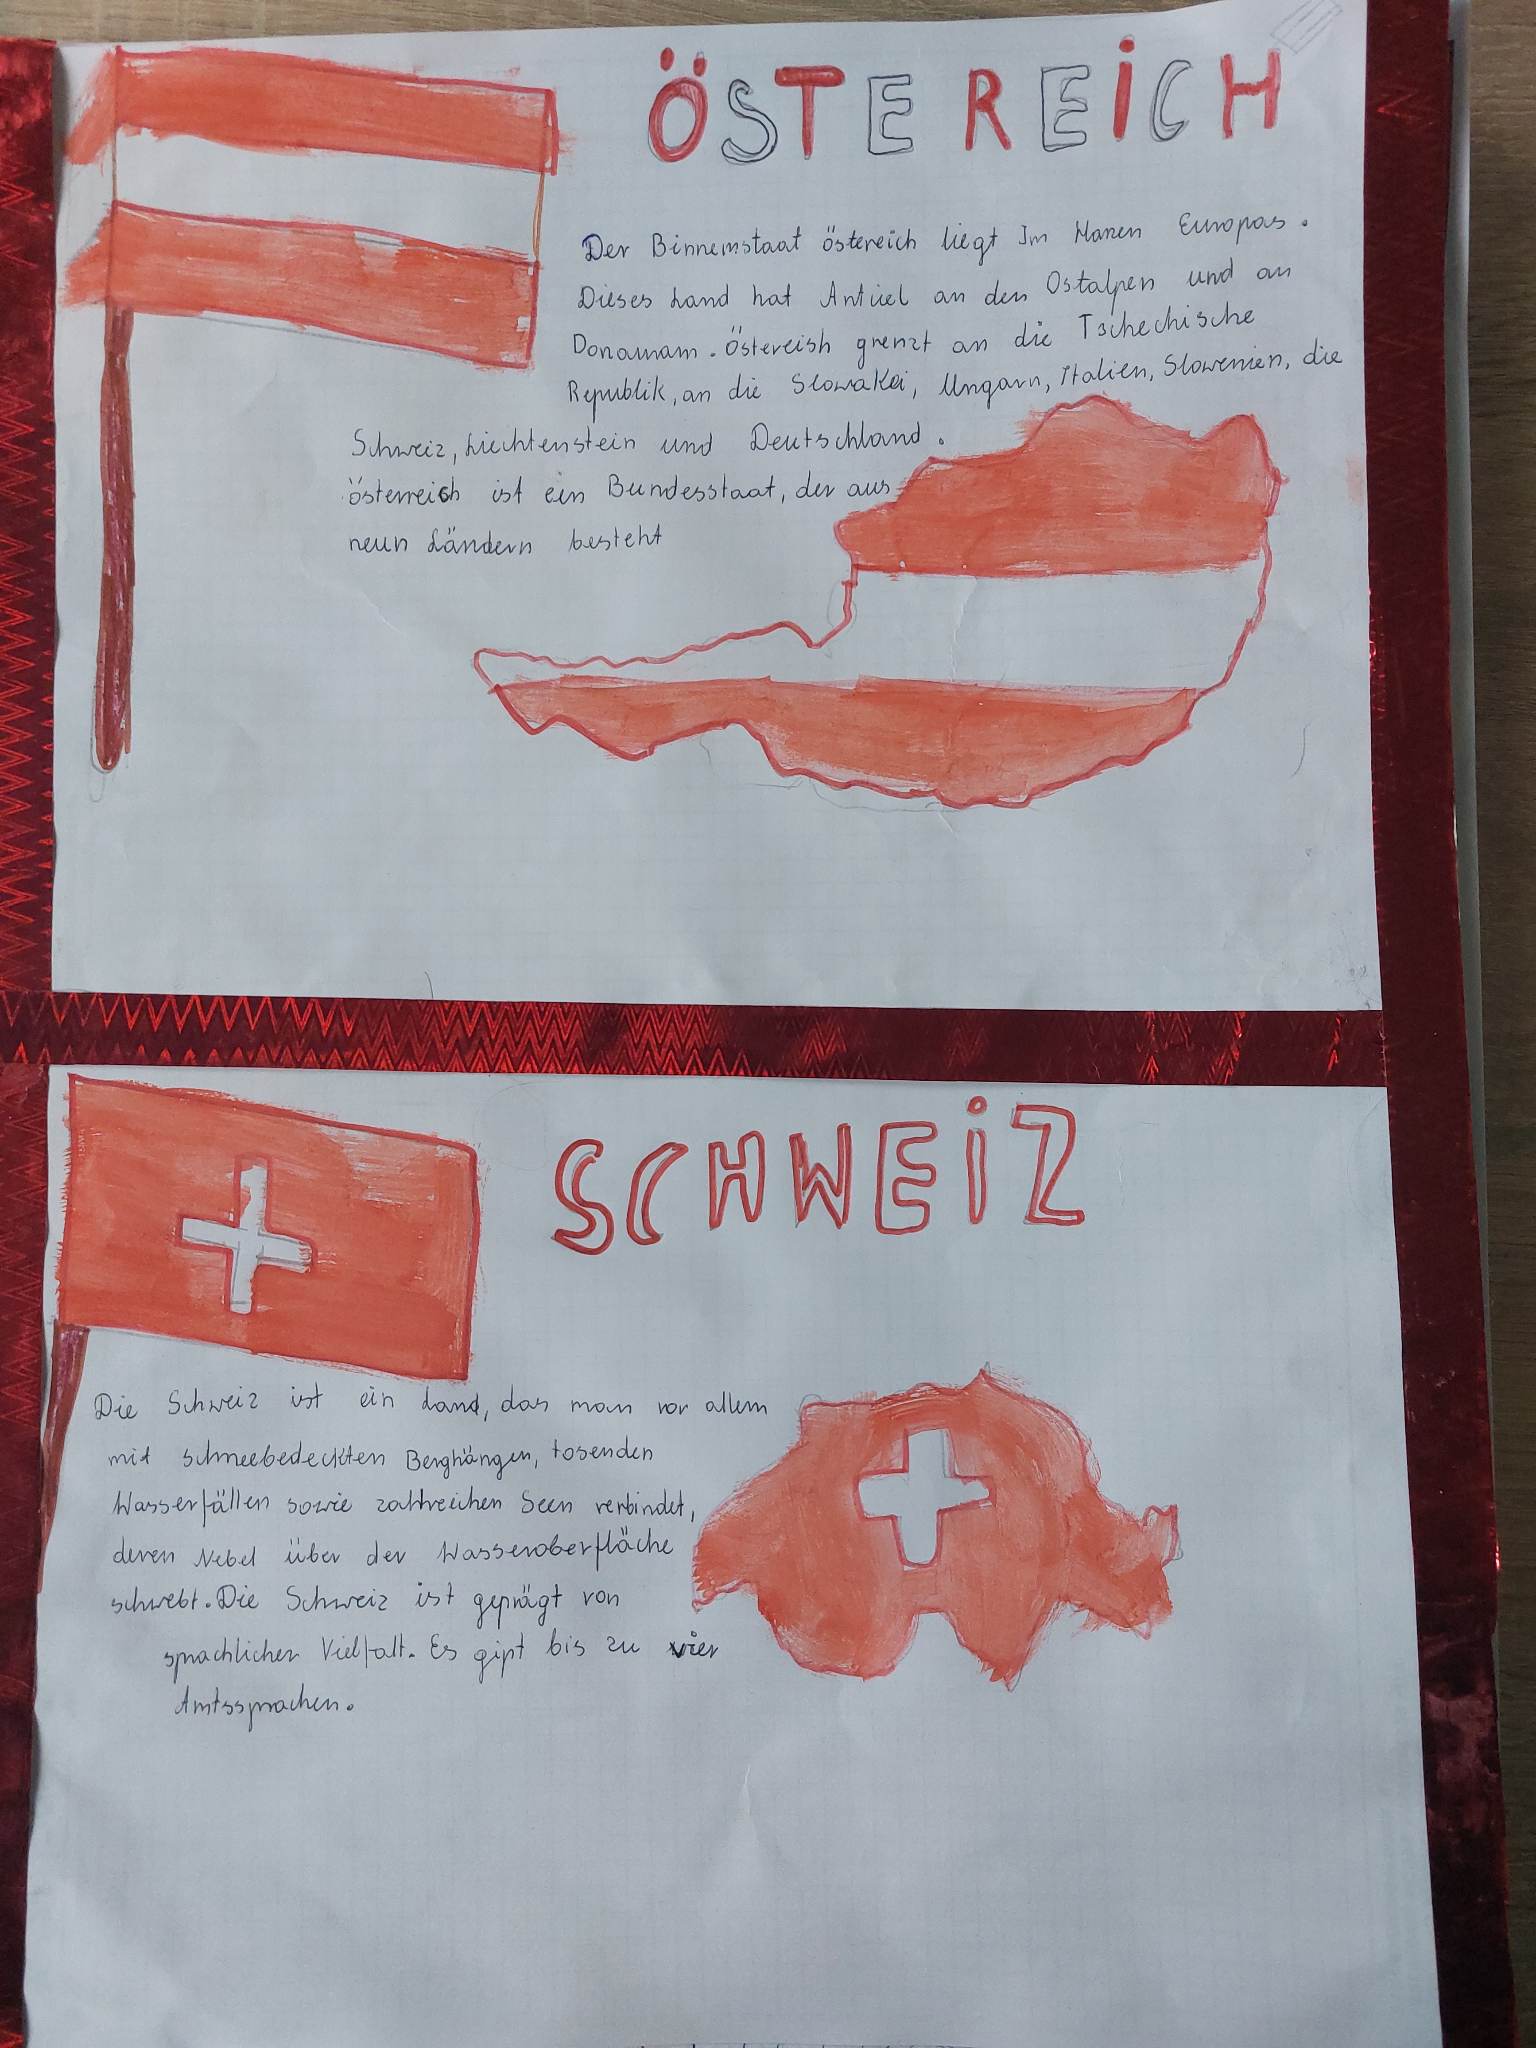 ÖSTEREiCH
Der Binnemstaat östereich liegt Im Hanen Europas.
Dieses Land hat Antiel an den Ostalpen und an
Donaunam. Östereish grenzt an die Tschechische
Republik, an die Slowakei, Ungarn, Italien, Slowenien, die
Schweiz, Liechtenstein und Deutschland.
österreich ist ein Bundesstaat, der aus
neun Ländern besteht
SCHWEiZ
Die Schweiz ist ein Land, das man vor allem
mit schneebedeckten Berghängen, tosenden
Wasserfällen sowie zahlreichen Seen verbindet,
deren Nebel über der Wasseroberfläche
schwebt. Die Schweiz ist geprägt von
sprachlicher Vielfalt. Es gipt bis zu vier
Amtssprachen.